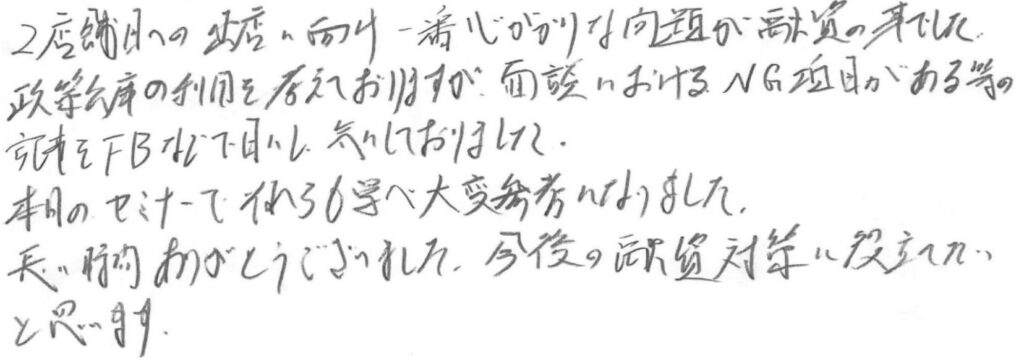 2店舗目への出店に向け一番心がかりな問題が融資の事でした。
政策公庫の利用を考えておりますが、面談におけるNG項目がある等の
記事をFBなどで目にし、気にしておりました。
本日のセミナーでそれらも学べ大変参考になりました。
長い時間ありがとうございました。今後の融資対策に役立てたい
と思います。